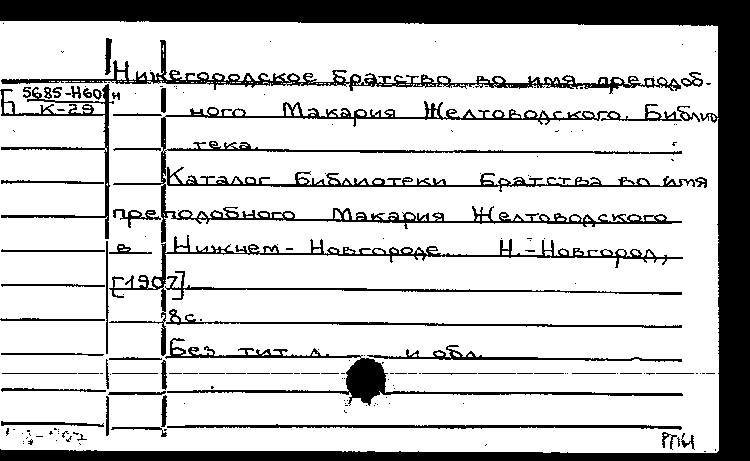 Нижегородское Братство во имя преподоб-
5685-Н60
К-29
ного Макария Желтоводского. Библио
тека.
Каталог Библиотеки Братства во имя
преподобного Макария Желтоводского
в Нижнем-Новгороде. Н.-Новгород,
[1907].
8с.
Без тит. л. и обл.